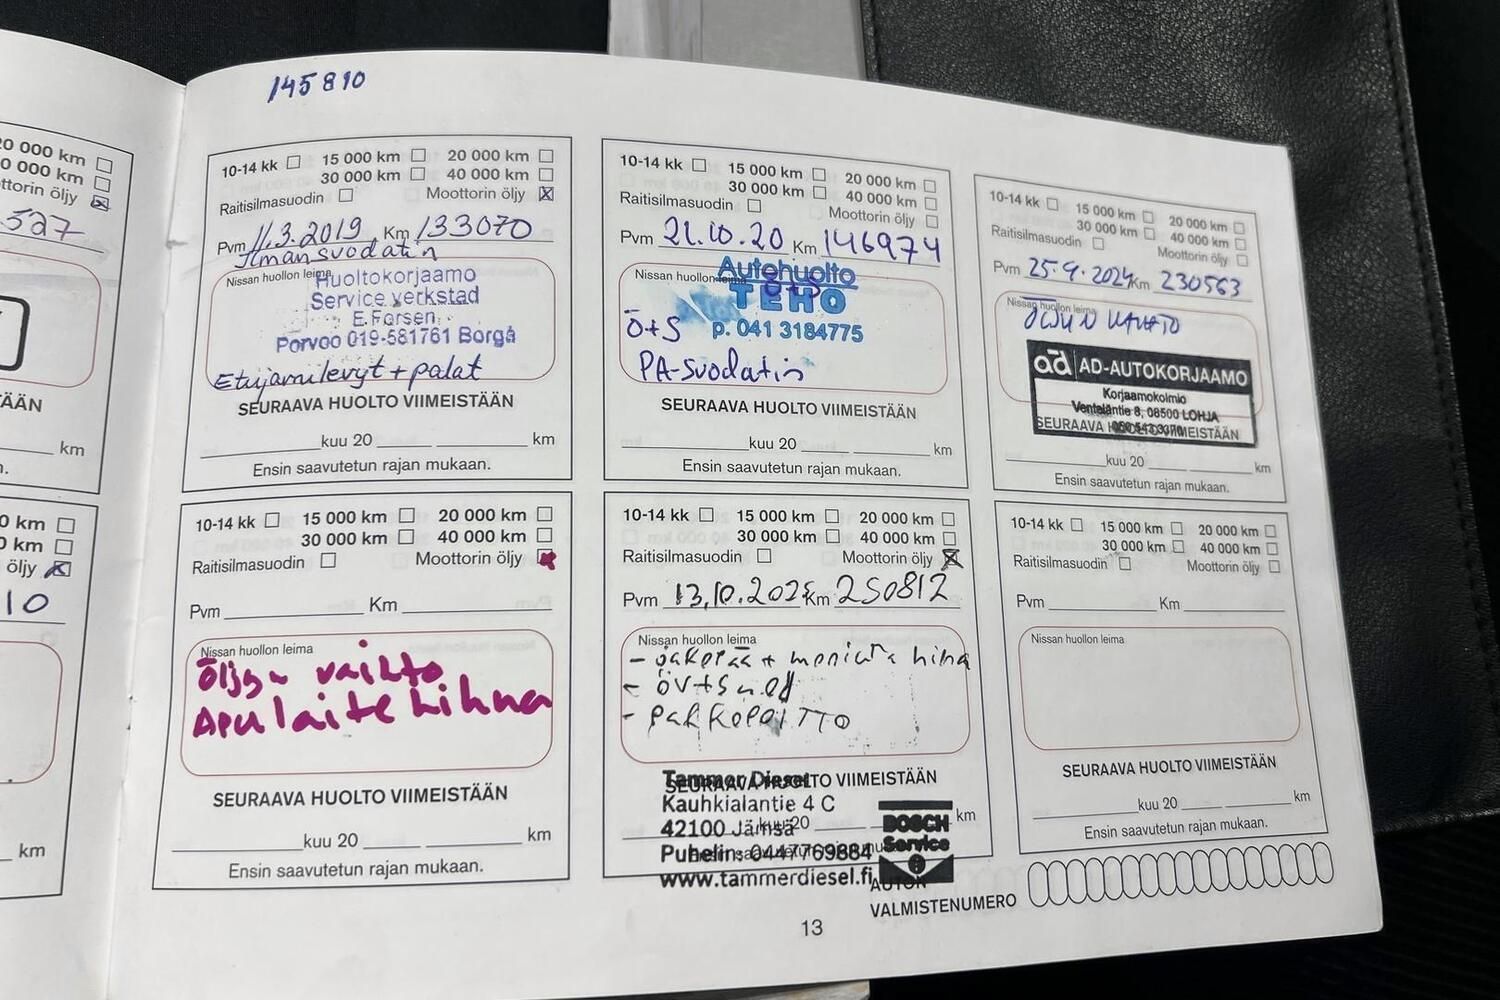 145810
20 000 km
0 000 km
ttorin öljy
527
ÄÄN
km
n.
0 km
0 km
öljy
10
km
10-14 kk 15 000 km 20 000 km
30 000 km 40 000 km
Raitisilmasuodin Moottorin öljy
Pvm 11.3.2019 Km 133070
Ilmansuodatin
Nissan huollon leima
Huoltokorjaamo
Service verkstad
E.Forsen
Porvoo 019-581761 Borgå
Etujarrulevyt + palat
SEURAAVA HUOLTO VIIMEISTÄÄN
kuu 20 km
Ensin saavutetun rajan mukaan.
10-14 kk 15 000 km 20 000 km
30 000 km 40 000 km
Raitisilmasuodin Moottorin öljy
Pvm 21.10.20 Km 146974
Nissan huollon leima
Autohuolto
Ö+S
TEHO
Ö+S p. 041 3184775
PA-suodatin
SEURAAVA HUOLTO VIIMEISTÄÄN
kuu 20 km
Ensin saavutetun rajan mukaan.
10-14 kk 15 000 km 20 000 km
30 000 km 40 000 km
Raitisilmasuodin Moottorin öljy
Pvm 25.9.2024 Km 230563
Nissan huollon leima
ÖLJYN VAIHTO
ad AD-AUTOKORJAAMO
Korjaamokolmio
Venteläntie 8, 08500 LOHJA
SEURAAVA HUOLTO VIIMEISTÄÄN
kuu 20 km
Ensin saavutetun rajan mukaan.
10-14 kk 15 000 km 20 000 km
30 000 km 40 000 km
Raitisilmasuodin Moottorin öljy
Pvm Km
Nissan huollon leima
Öljyn vaihto
Apulaitehihna
SEURAAVA HUOLTO VIIMEISTÄÄN
kuu 20 km
Ensin saavutetun rajan mukaan.
10-14 kk 15 000 km 20 000 km
30 000 km 40 000 km
Raitisilmasuodin Moottorin öljy
Pvm 13.10.2025 Km 250812
Nissan huollon leima
- jakopää + moniura hihna
- ÖV+S
- PAKKOPOLTTO
SEURAAVA HUOLTO VIIMEISTÄÄN
Tammer Diesel
Kauhkialantie 4 C
kuu 20 km
42100 Jämsä
Puhelin: 0447769884
www.tammerdiesel.fi
BOSCH
Service
10-14 kk 15 000 km 20 000 km
30 000 km 40 000 km
Raitisilmasuodin Moottorin öljy
Pvm Km
Nissan huollon leima
SEURAAVA HUOLTO VIIMEISTÄÄN
kuu 20 km
Ensin saavutetun rajan mukaan.
AUTON
VALMISTENUMERO
13